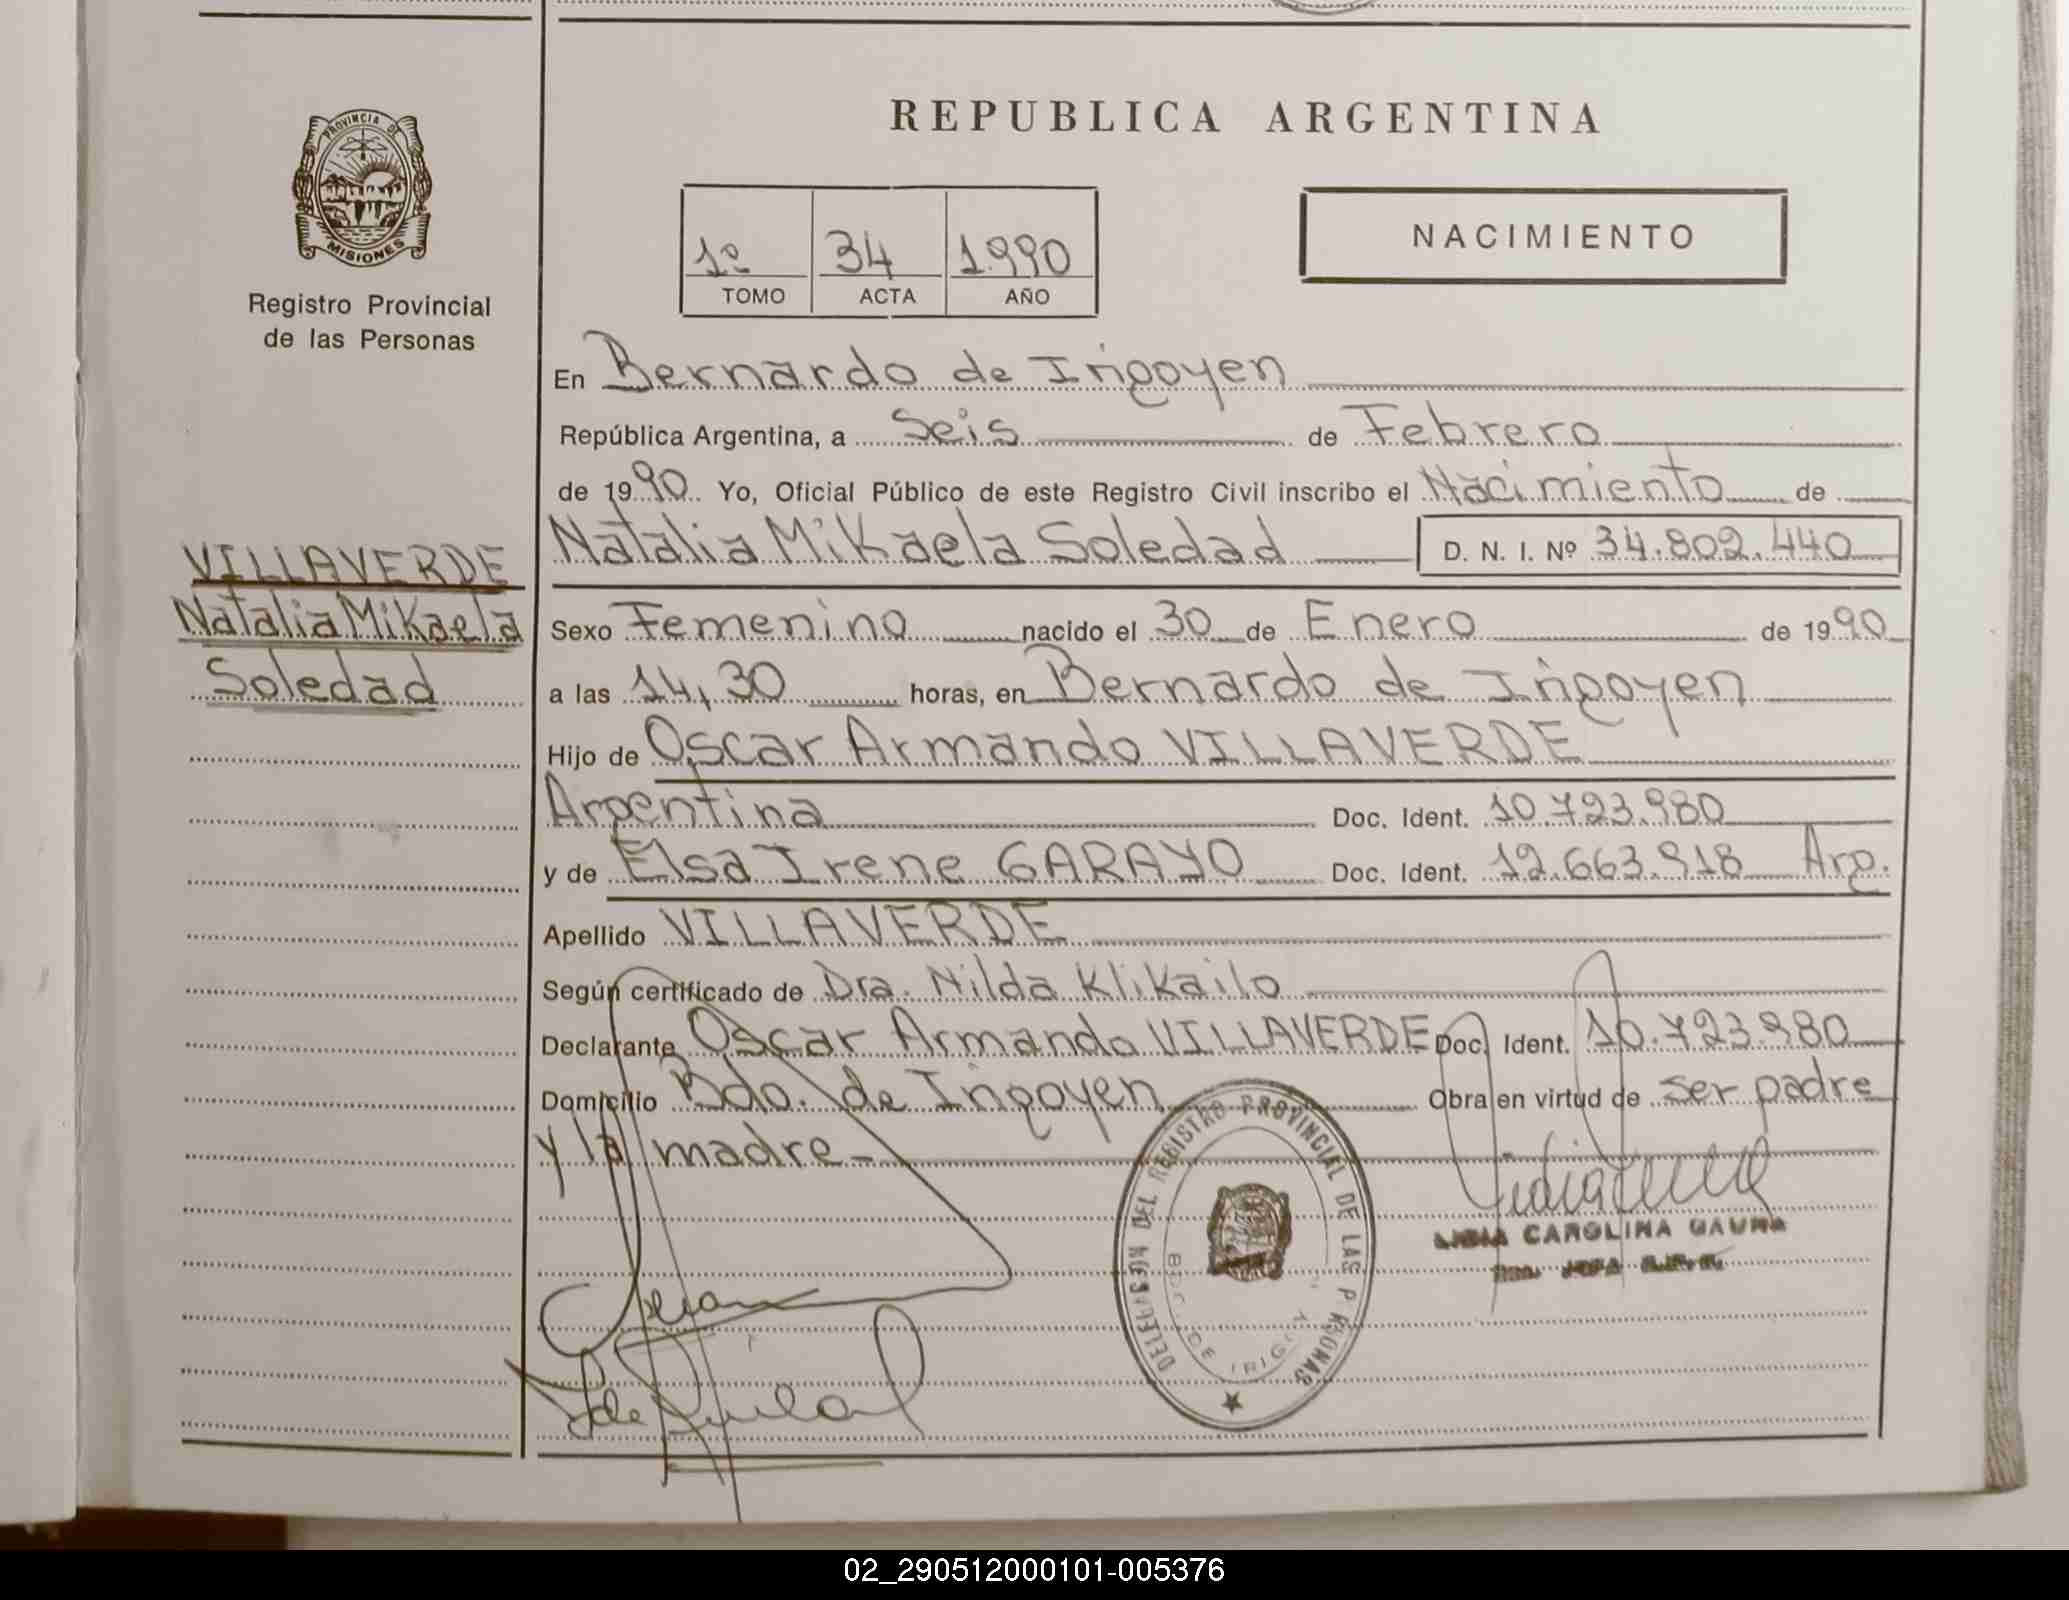 PROVINCIA DE
MISIONES
Registro Provincial
de las Personas
REPUBLICA ARGENTINA
1º 34 1.990
TOMO ACTA AÑO
NACIMIENTO
En Bernardo de Irigoyen
República Argentina, a seis de Febrero
de 1990 Yo, Oficial Público de este Registro Civil inscribo el Nacimiento de
Natalia Mikaela Soledad D. N. I. Nº 34.802.440
VILLAVERDE
Natalia Mikaela
Soledad
Sexo Femenino nacido el 30 de Enero de 1990
a las 14,30 horas, en Bernardo de Irigoyen
Hijo de Oscar Armando VILLAVERDE
Argentina Doc. Ident. 10.723.980
y de Elsa Irene GARAYO Doc. Ident. 12.663.918 Arg.
Apellido VILLAVERDE
Según certificado de Dra. Nilda Klikailo
Declarante Oscar Armando VILLAVERDE Doc. Ident. 10.723.980
Domicilio Bdo. de Irigoyen Obra en virtud de ser padre
y la madre-
DELEGACION DEL REGISTRO PROVINCIAL DE LAS PERSONAS
BDO. DE IRIGOYEN
LIDIA CAROLINA GAUNA
JEFA
02_290512000101-005376